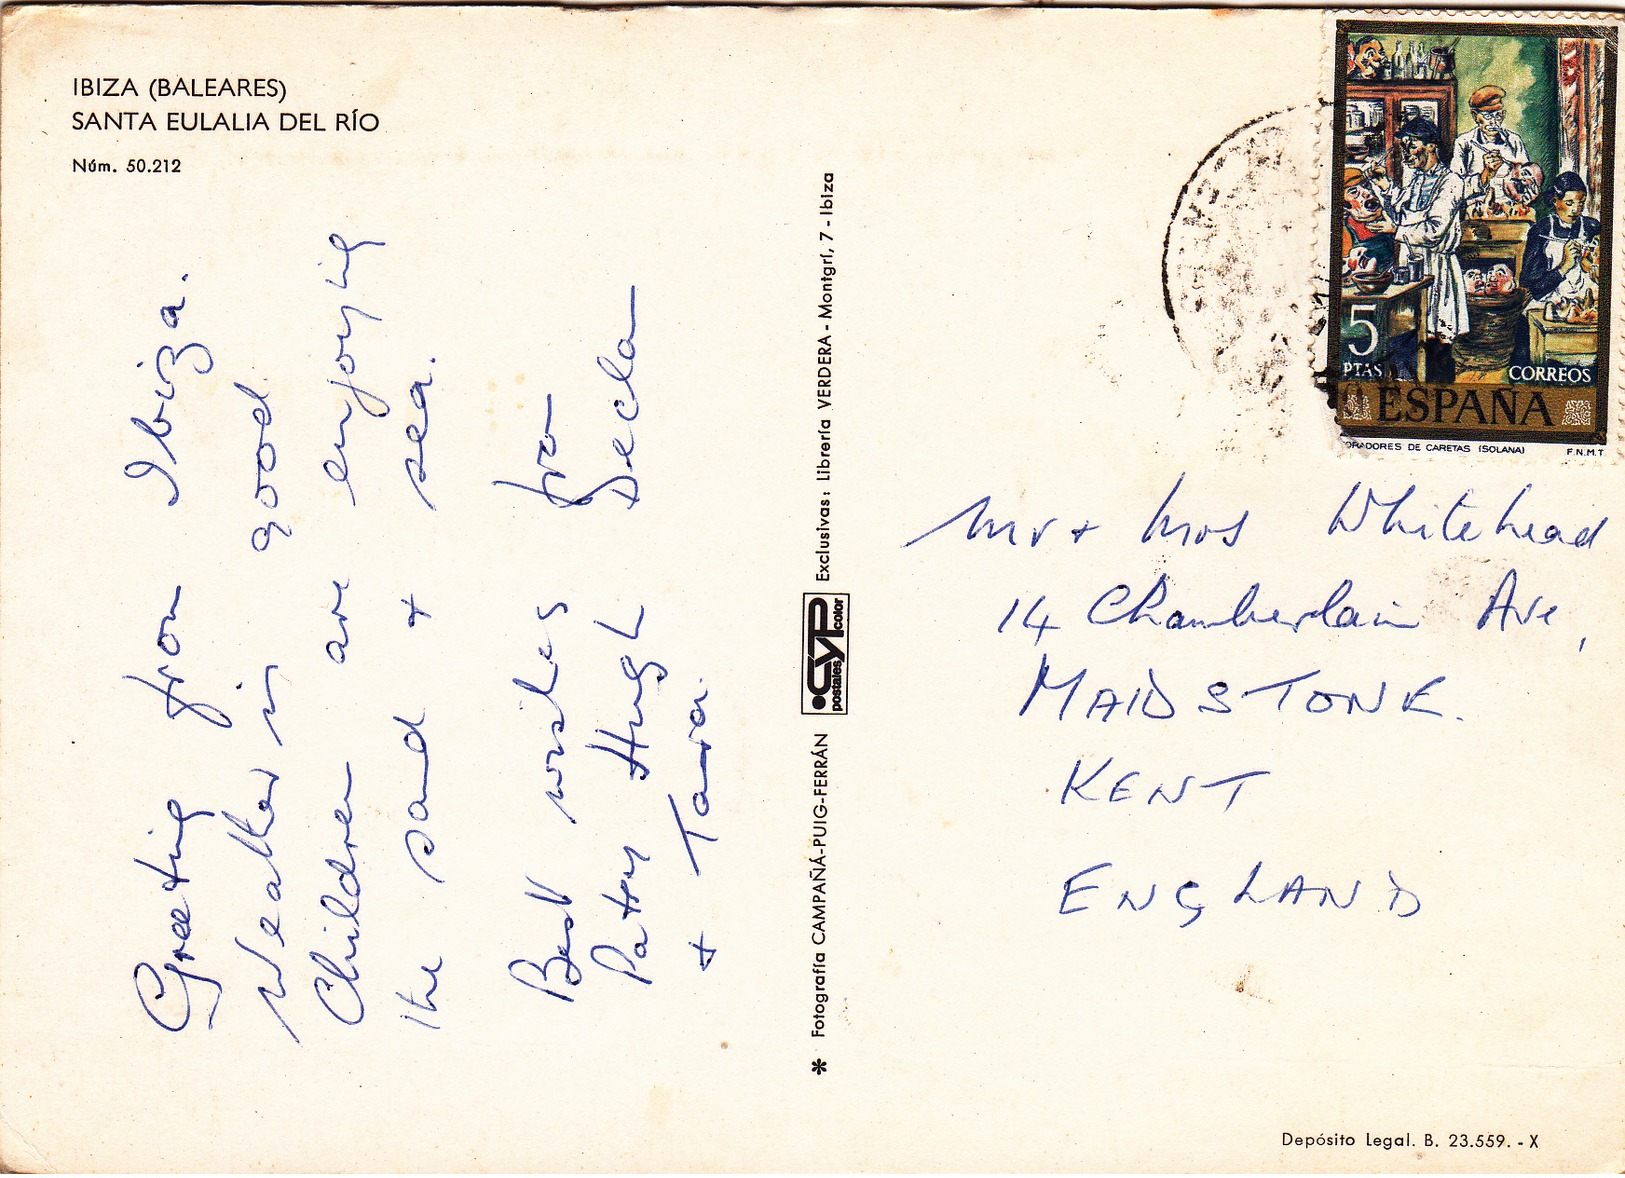 IBIZA (BALEARES)
SANTA EULALIA DEL RÍO
Núm. 50.212
Greetig from Ibiza.
Weather is good
Children are enjoyig
the sand + sea.
Best wishes fro
Patsy Hugh Decla
+ Tara.
* Fotografía CAMPAÑÁ-PUIG-FERRÁN
CYP
postales color
Exclusivas: Librería VERDERA - Montgrí, 7 - Ibiza
5
PTAS
CORREOS
ESPAÑA
ORADORES DE CARETAS (SOLANA)
F.N.M.T.
Mr + Mrs Whitehead
14 Chamberlain Ave,
MAIDSTONE.
KENT
ENGLAND
Depósito Legal. B. 23.559. - X